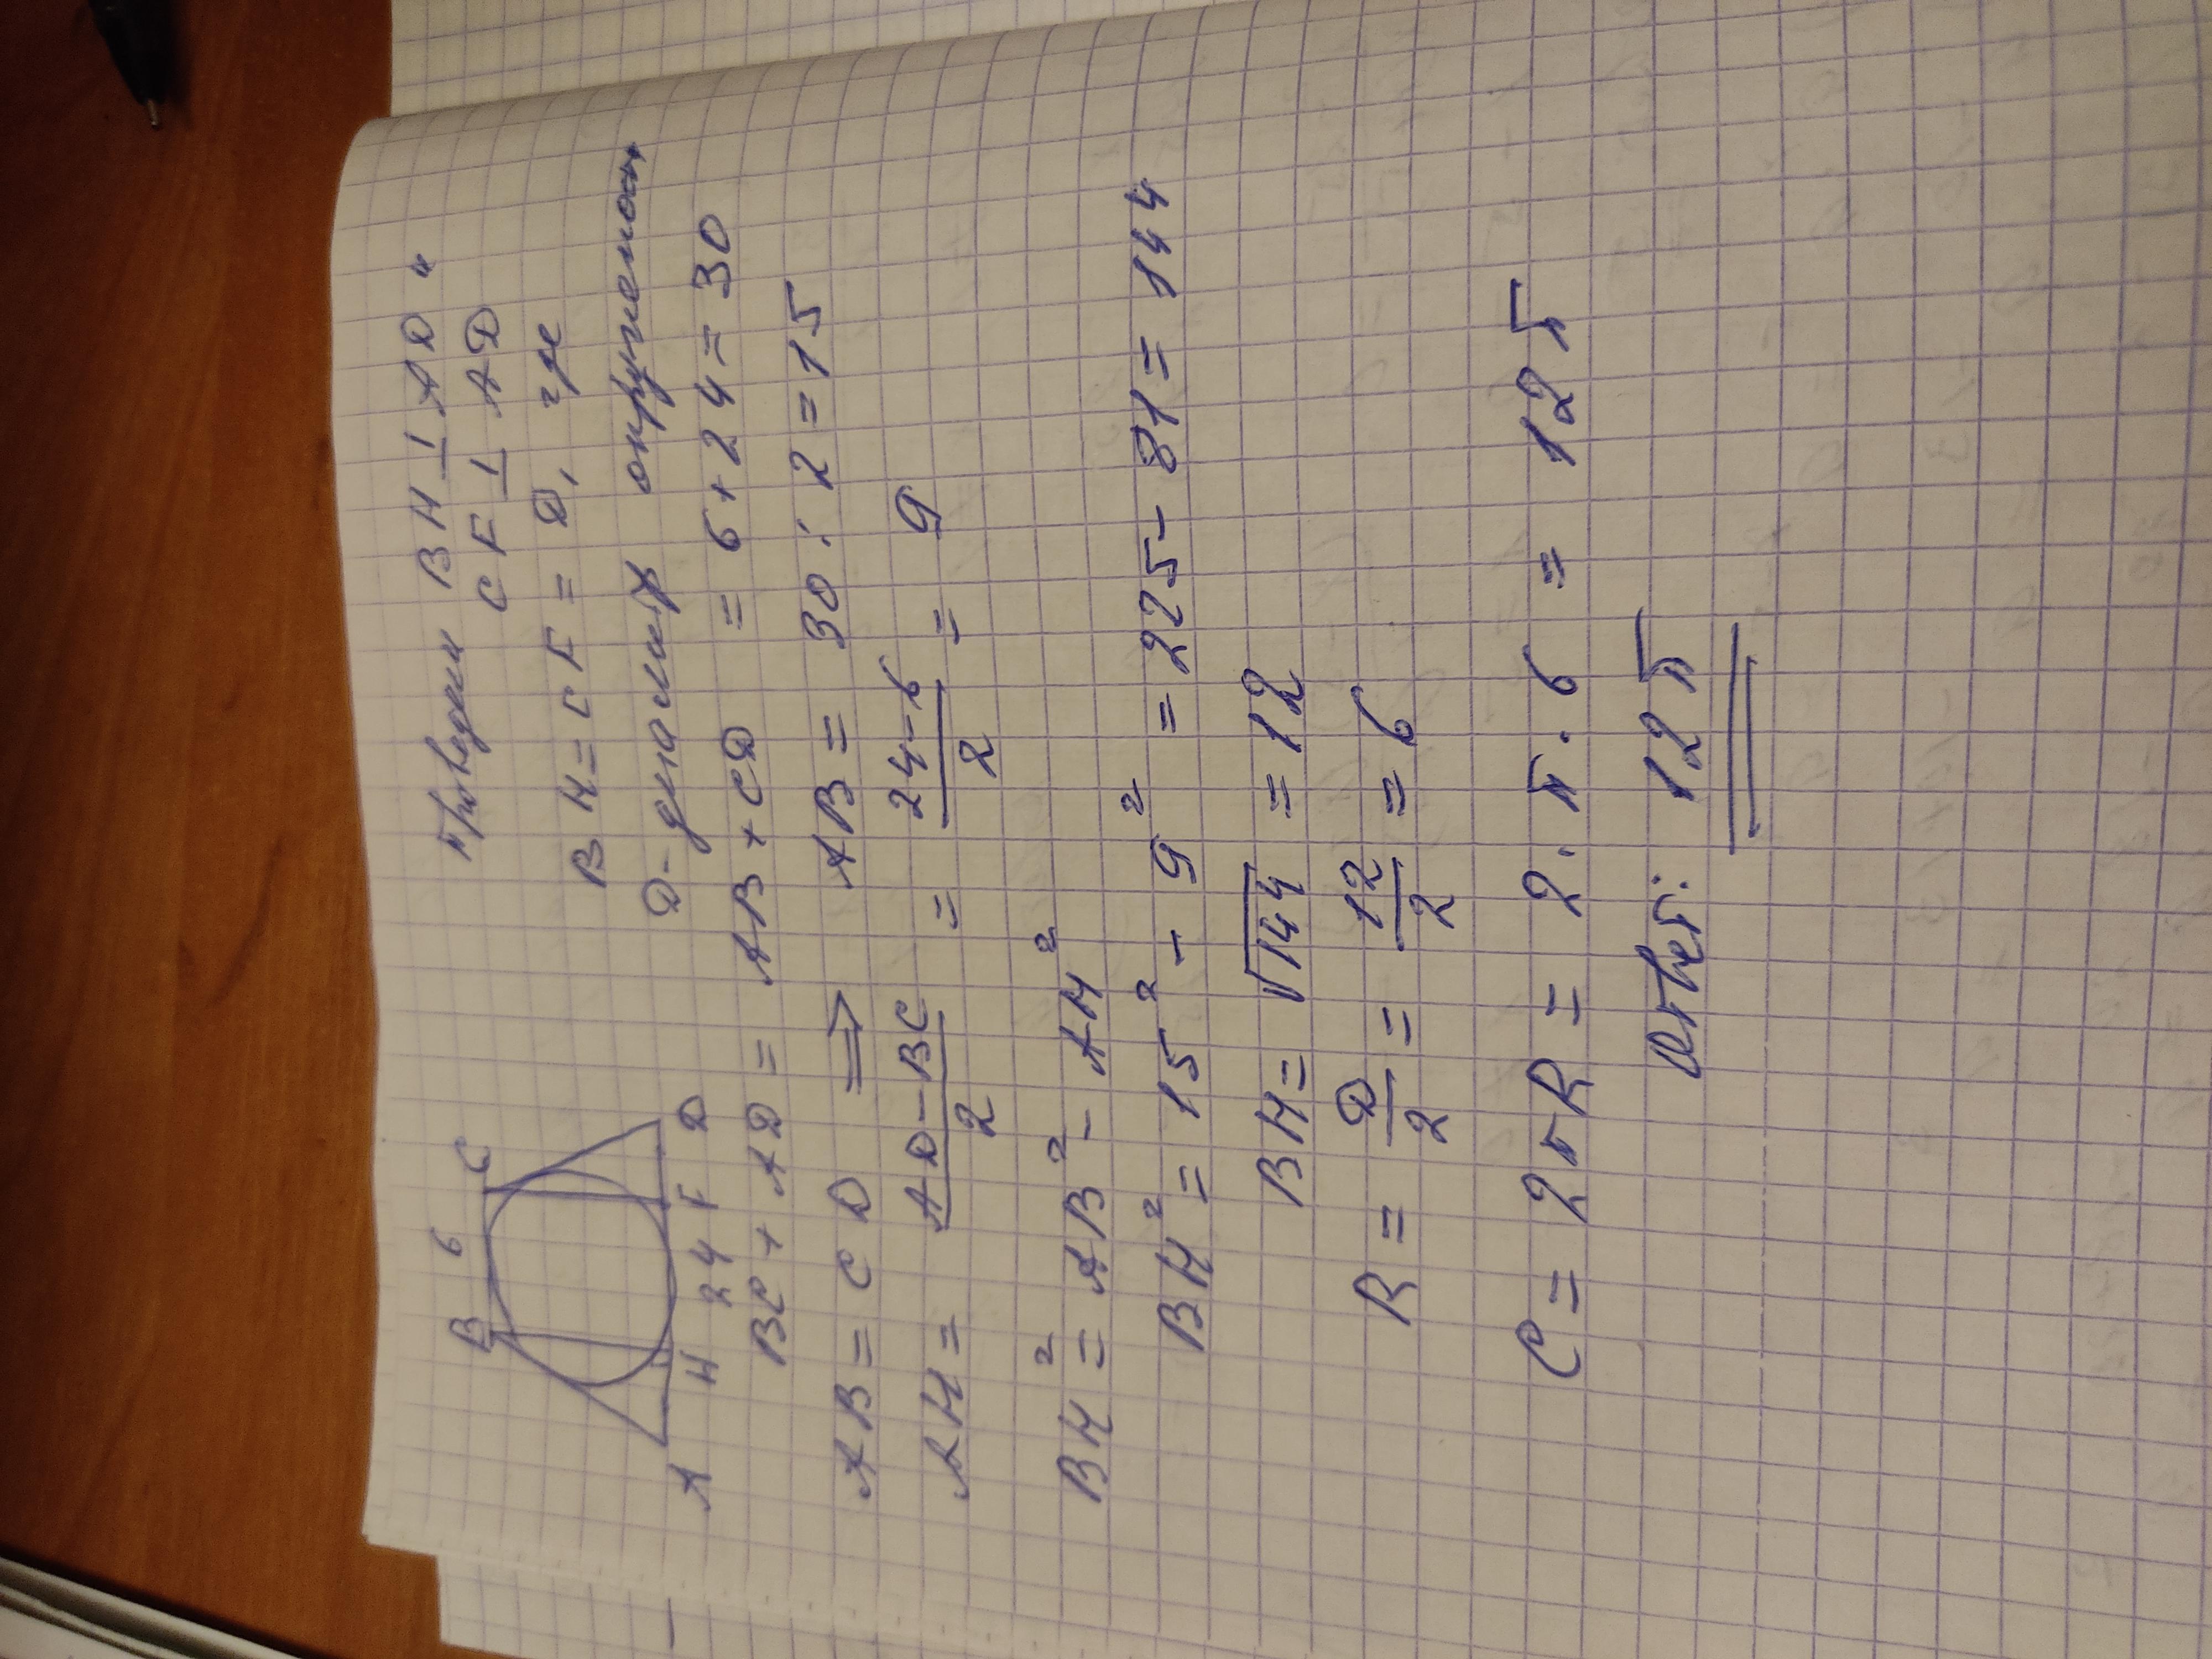 Проведем BH ⊥ AD и
CF ⊥ AD
BH = CF = D, где
D - диаметр окружности
B 6 C
A H 24 F D
BC + AD = AB + CD = 6 + 24 = 30
AB = CD ⟹ AB = 30 : 2 = 15
AH = (AD - BC)/2 = (24 - 6)/2 = 9
BH² = AB² - AH²
BH² = 15² - 9² = 225 - 81 = 144
BH = √144 = 12
R = D/2 = 12/2 = 6
C = 2πR = 2 · π · 6 = 12π
Ответ: 12π